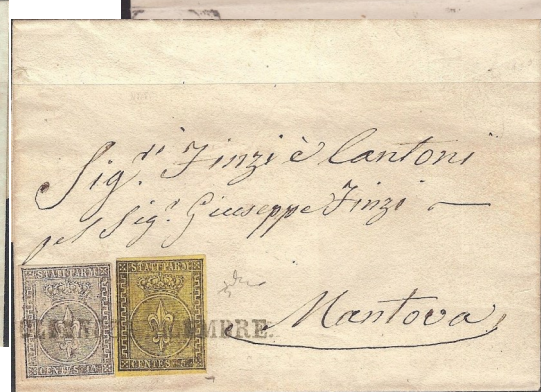 Sig.ri Finzi è Cantoni
pel Sig.r Giuseppe Finzi
Mantova
STATI PARM.
STATI PARM.
CENTES